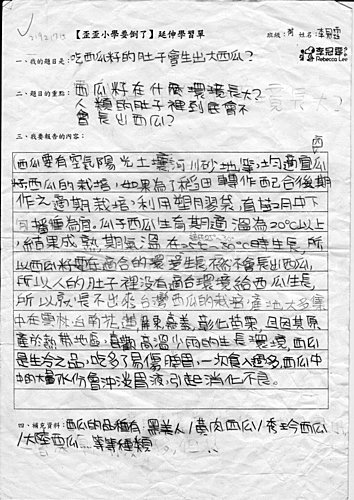 【歪歪小學要倒了】延伸學習單
班級: 姓名:李冠霖
李冠霖
Rebecca Lee
一、我的題目是:吃西瓜籽的肚子會生出大西瓜?
二、題目的重點:西瓜籽在什麼環境長大?
人類的肚子裡到底會不
會長出西瓜?
三、我要報告的內容:
西瓜要有空氣陽光土壤河川砂地等,均適宜瓜
籽西瓜的栽培,如果為了稻田轉作配合後期
作之適期栽培,利用塑膠袋直播2月中下
旬播種為宜。瓜子西瓜生育期適溫為20℃以上,
結果成熟期氣溫在 30℃時生長,所
以西瓜籽要在適合的環境生長才會長出西瓜,
所以人的肚子裡沒有適合環境給西瓜生長,
所以就長不出來台灣西瓜的栽培,產地大多集
中在雲林,台南,花蓮,屏東,嘉義,彰化,苗栗,但因其原
產於熱帶地區,喜歡高溫少雨的生長環境,西瓜
是生冷之品,吃多了易傷脾胃,一次食入過多,西瓜中
中的大量水份會沖淡胃液,引起消化不良。
四、補充資料:西瓜的品種有:黑美人/黃肉西瓜/秀玲西瓜
/大陸西瓜……等等種類